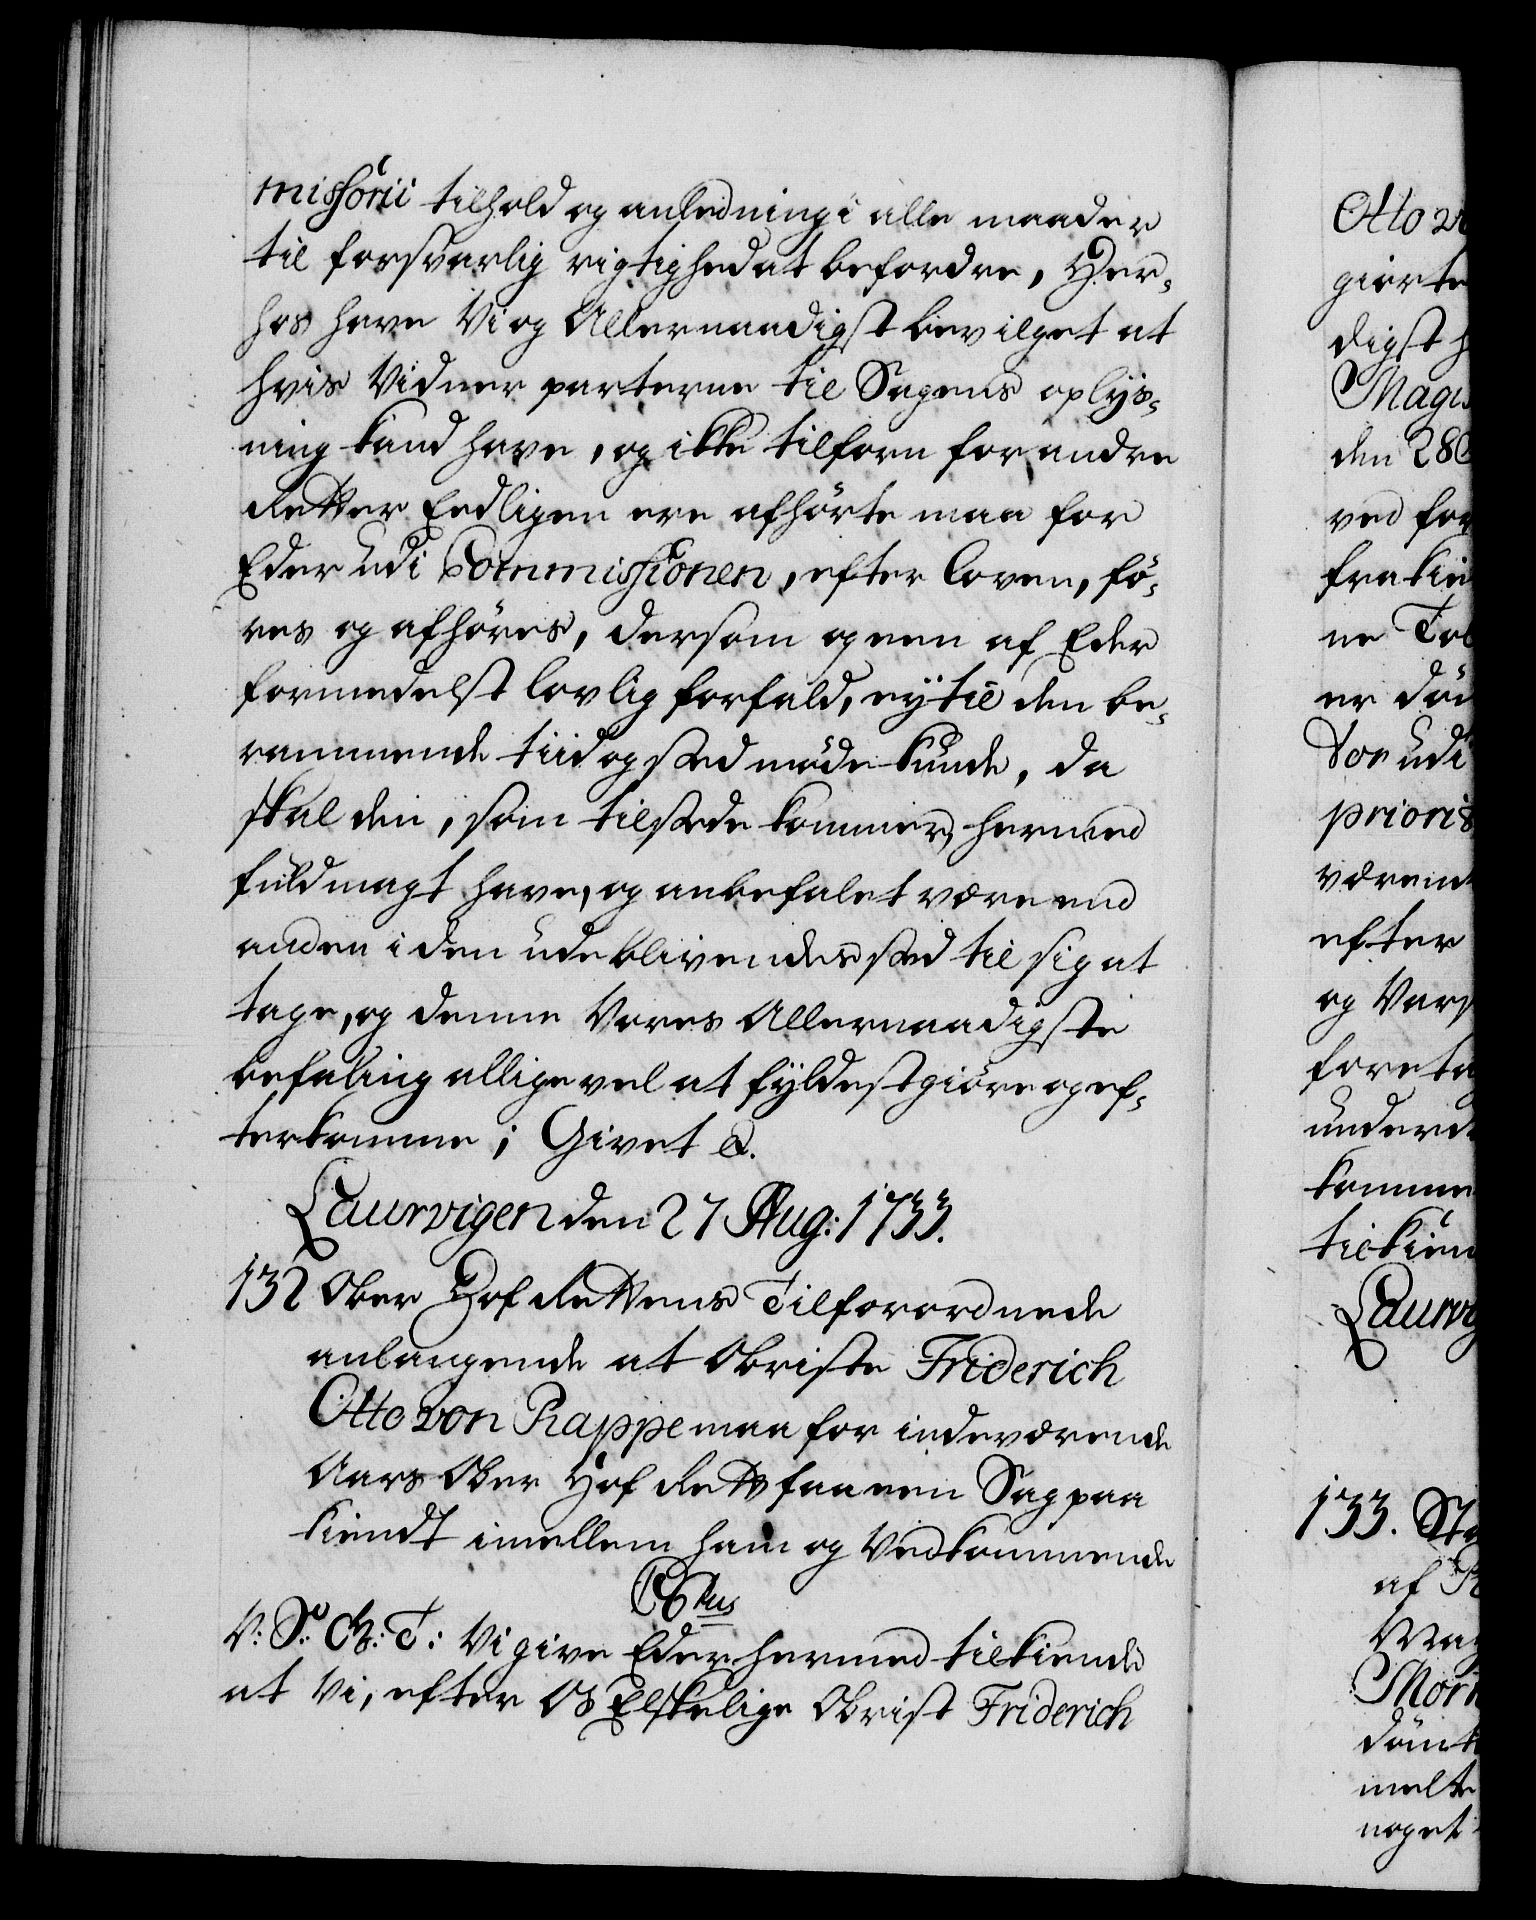 missorii tilhold og anledning i alle maader
til forsvarlig rigtighed at befordre, Her-
hos have Vi og Allernaadigst bevilget at
hvis Vidner parterne til Sagens oplys-
ning kand have, og ikke tilforn for andre
Retter Eedligen ere afhørte maa for
Eder udi Commissionen, efter Loven, fø-
res og afhøres, dersom og een af Eder
formedelst lovlig forfald, ey til den be-
rammende tiid og sted møde kunde, da
skal den, som tilstede kommer, hermed
fuldmagt have, og anbefalet være end
anden i den udeblivendes sted til sig at
tage, og denne Vores Allernaadigste
befaling alligevel at fyldestgiøre og ef-
terkomme; Givet &.
Laurvigen den 27 Aug: 1733.
132 Ober Hof Rettens Tilforordnede
anlangende at Obriste Friderich
Otto von Rappe maa for indeværende
Aars Ober Hof Rett faa een Sag paa
kiendt imellem ham og Vedkommende
C6tus
V: S: G: T: Vi give Eder hermed tilkiende
at Vi, efter Os Elskelige Obrist Friderich
Otto vo
giorte
digst h
Magi
den 28
ved for
fra kie
ne Tol
er død
Vor udi
prioris
værend
efter
og Vars
foreta
underd
komme
tilkien
Laurvig
133. St
af
Mag
Mor
dømt
melte
noget